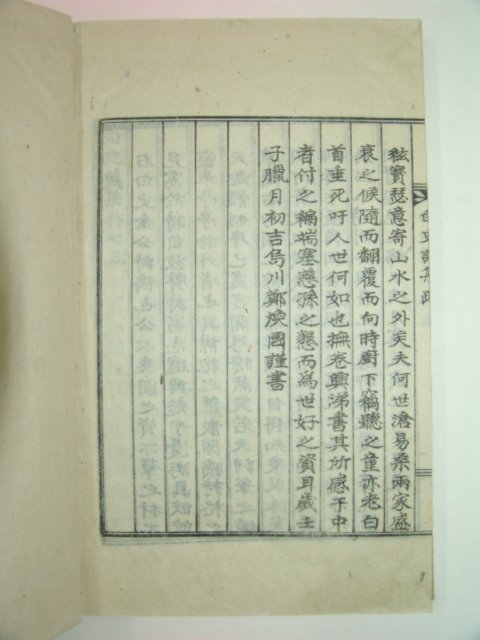 白史詩集跋
紘寶瑟意寄山水之外矣夫何世滄易桑兩家盛
衰之候隨而翻覆而向時廚下竊聽之童亦老白
首垂死吁人世何如也撫卷興涕書其所感于中
者付之稿端塞慈孫之懇而爲世好之資耳歲壬
子臘月初吉烏川鄭煥國謹書